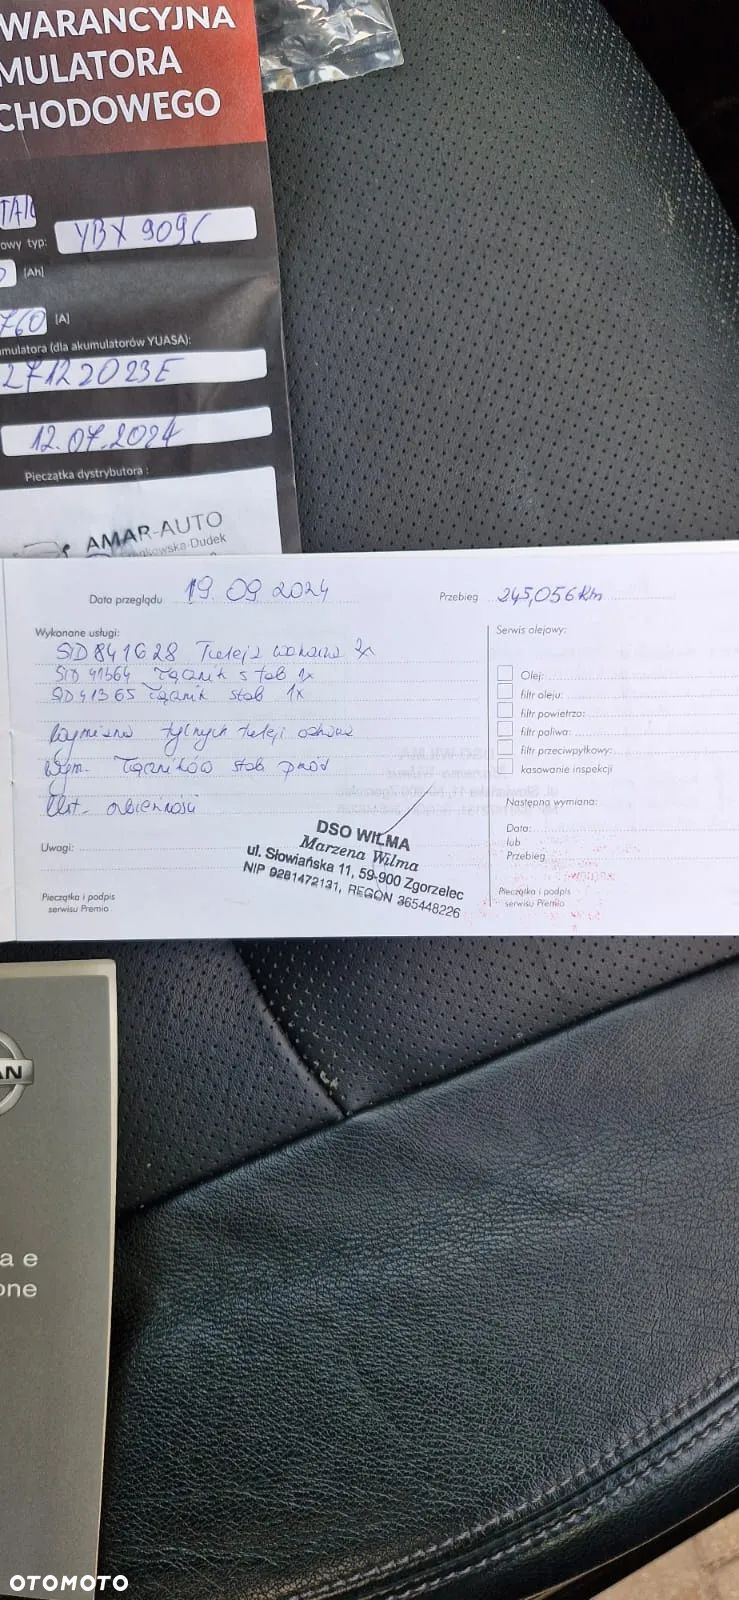 WARANCYJNA
MULATORA
CHODOWEGO
owy typ: YBX 9096
[Ah]
760 [A]
mulatora (dla akumulatorów YUASA):
27122023E
12.07.2024
Pieczątka dystrybutora :
AMAR-AUTO
kowska-Dudek
Data przeglądu 19.09.2024
Przebieg 245,056 km
Wykonane usługi:
Tuleja wahacza
Łącznik stab 1x
Łącznik stab 1x
Wymiana tylnych tuleji
Wym. Łączników stab przód
Ust. zbieżności
Uwagi:
DSO WILMA
Marzena Wilma
ul. Słowiańska 11, 59-900 Zgorzelec
NIP 9281472131, REGON 365448226
Pieczątka i podpis
serwisu Premio
Serwis olejowy:
Olej:
filtr oleju:
filtr powietrza:
filtr paliwa:
filtr przeciwpyłkowy:
kasowanie inspekcji
Następna wymiana:
Data:
lub
Przebieg
Pieczątka i podpis
serwisu Premio
AN
a e
one
OTOMOTO